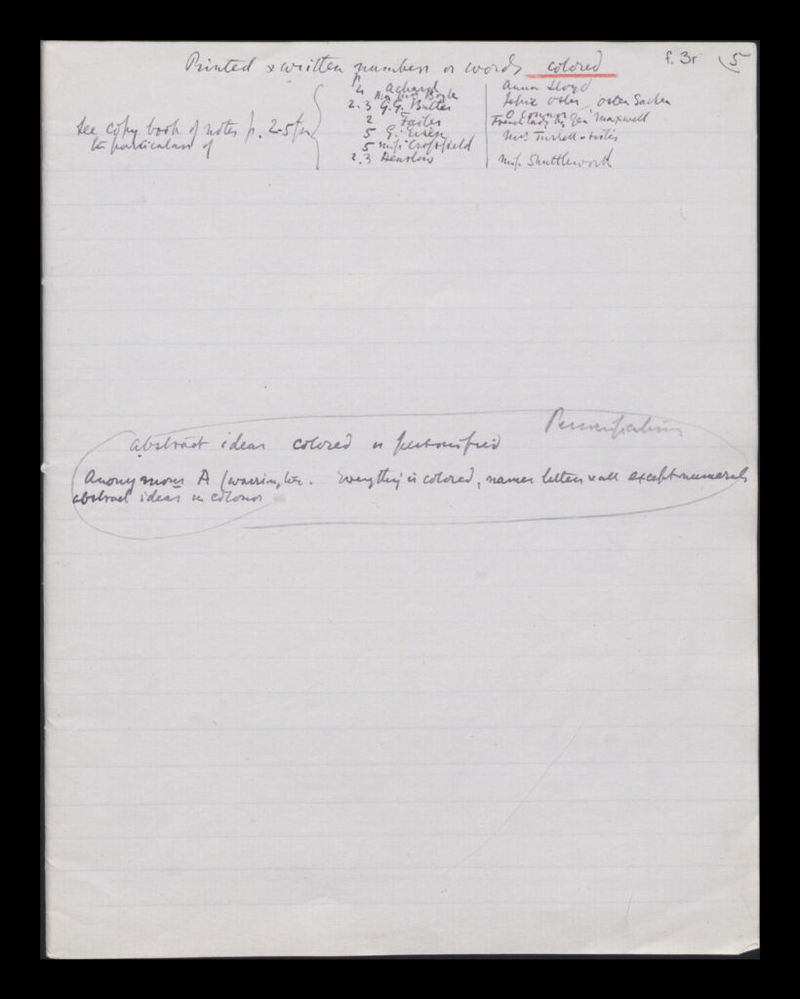 Printed & written numbers or words colored f. 3r 5
p.
4 Achard
Miss Boyle
2.3 G.G. Butler
2
5 G. Eisen
5 Miss Crossfield
2.3 Henslow
Anna Lloyd
Osten Sacken
French lady by Gen Maxwell
Mrs
Miss Shuttleworth
See copy book of notes p. 2-5 for
the particulars of
Personification
abstract ideas colored or personified
Anonymous A (Warrington. Everything is colored, names letters & all except numerals
abstract ideas in colours